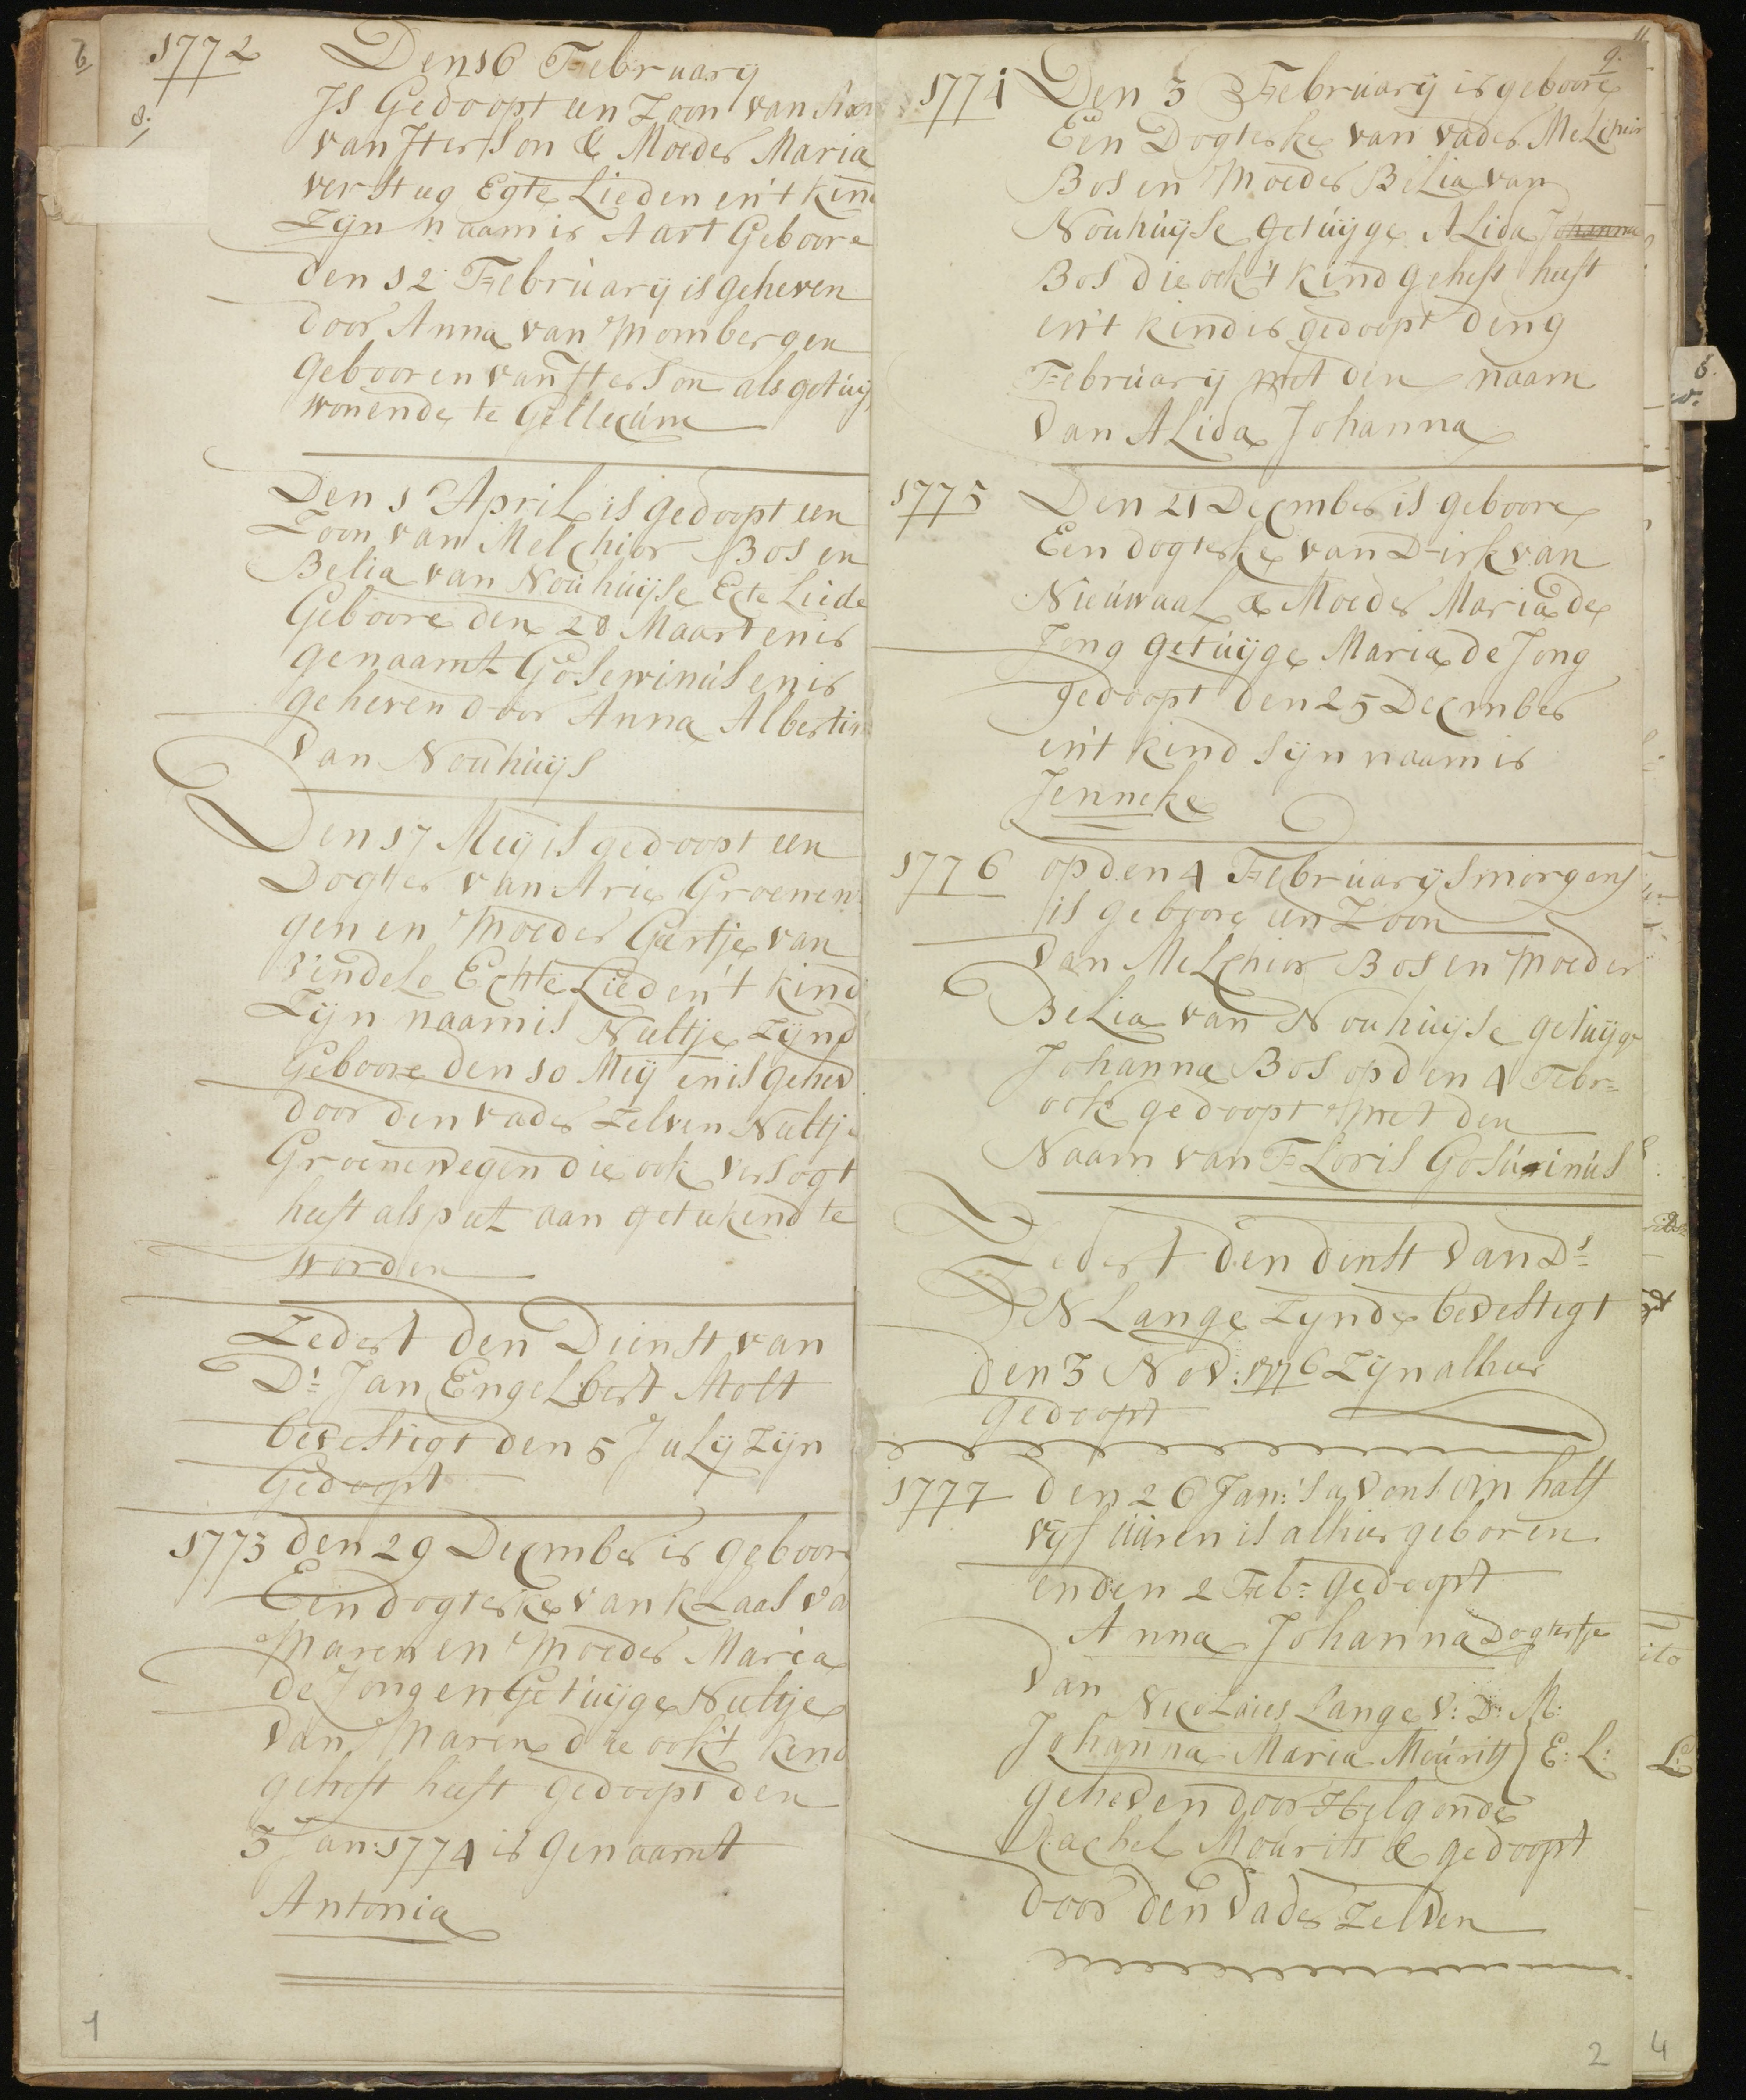 6
8.
1772
Den 16 February
Is Gedoopt een Zoon van
van Iterson & Moeder Maria
versteeg Egte Lieden en't kin
Zyn naam is Aart Geboore
den 12 February is geheven
door Anna van Mombergen
gebooren van Iterson als getuy
wonende te Gellecum
Den 1 April is gedoopt een
Zoon van Melchior Bos en
Belia van Nouhuyse Egte Liede
Geboore den 28 Maart en is
genaamt Gosewinus en is
geheven door Anna Albertin
van Nouhuys
Den 17 Mey is gedoopt een
Dogter van Arie Groenen
gen en Moeder Geertje van
Vendelo Echte Lied en't kind
Zyn naam is Neeltje Zynd
Geboore den 10 Mey en is gehev
door den vader Zelven Neeltje
Groenewegen die ook versogt
heeft als peet aan getekend te
worden
Zedert den Dienst van
Ds Jan Engelbert Molt
bevestigt den 5 July Zyn
Gedoopt
1773 den 29 December is geboore
Een dogterke van Klaas va
Maren en Moeder Maria
de Jong en Getuyge Neeltje
van Maren die ook't kind
geheft heeft gedoopt den
3 Jan: 1774 is genaamt
Antonia
1
9.
1774 Den 3 February is geboore
Een Dogterke van vader Melchior
Bos en Moeder Belia van
Nouhuyse getuyge Alida Johanna
Bos die ook 't kind geheft heeft
en't kind is gedoopt den 9
February met den naam
van Alida Johanna
1775 Den 21 December is geboore
Een dogterke van Dirk van
Nieuwaal & Moeder Maria de
Jong getuyge Maria de Jong
gedoopt den 25 December
en't kind syn naam is
Jenneke
1776 op den 4 February smorgens
is geboore een Zoon
van Melchior Bos en Moeder
Belia van Nouhuyse getuyge
Johanna Bos op den 4 Febr=
ook gedoopt met den
Naam van Floris Gosuinus
Zedert den dienst van Ds
N Lange Zynde bevestigt
den 3 Nov: 1776 Zyn alhier
gedoopt
1777 den 26 Jan: 's avonts om half
vyf uuren is alhier geboren
en den 2 Feb= gedoopt
Anna Johanna Dogtertje
van
Nicolaus Lange V: D: M:
Johanna Maria Mourits } E: L:
geheven door Helgonde
Rachel Mourits & gedoopt
door den Vader Zelven
2
4